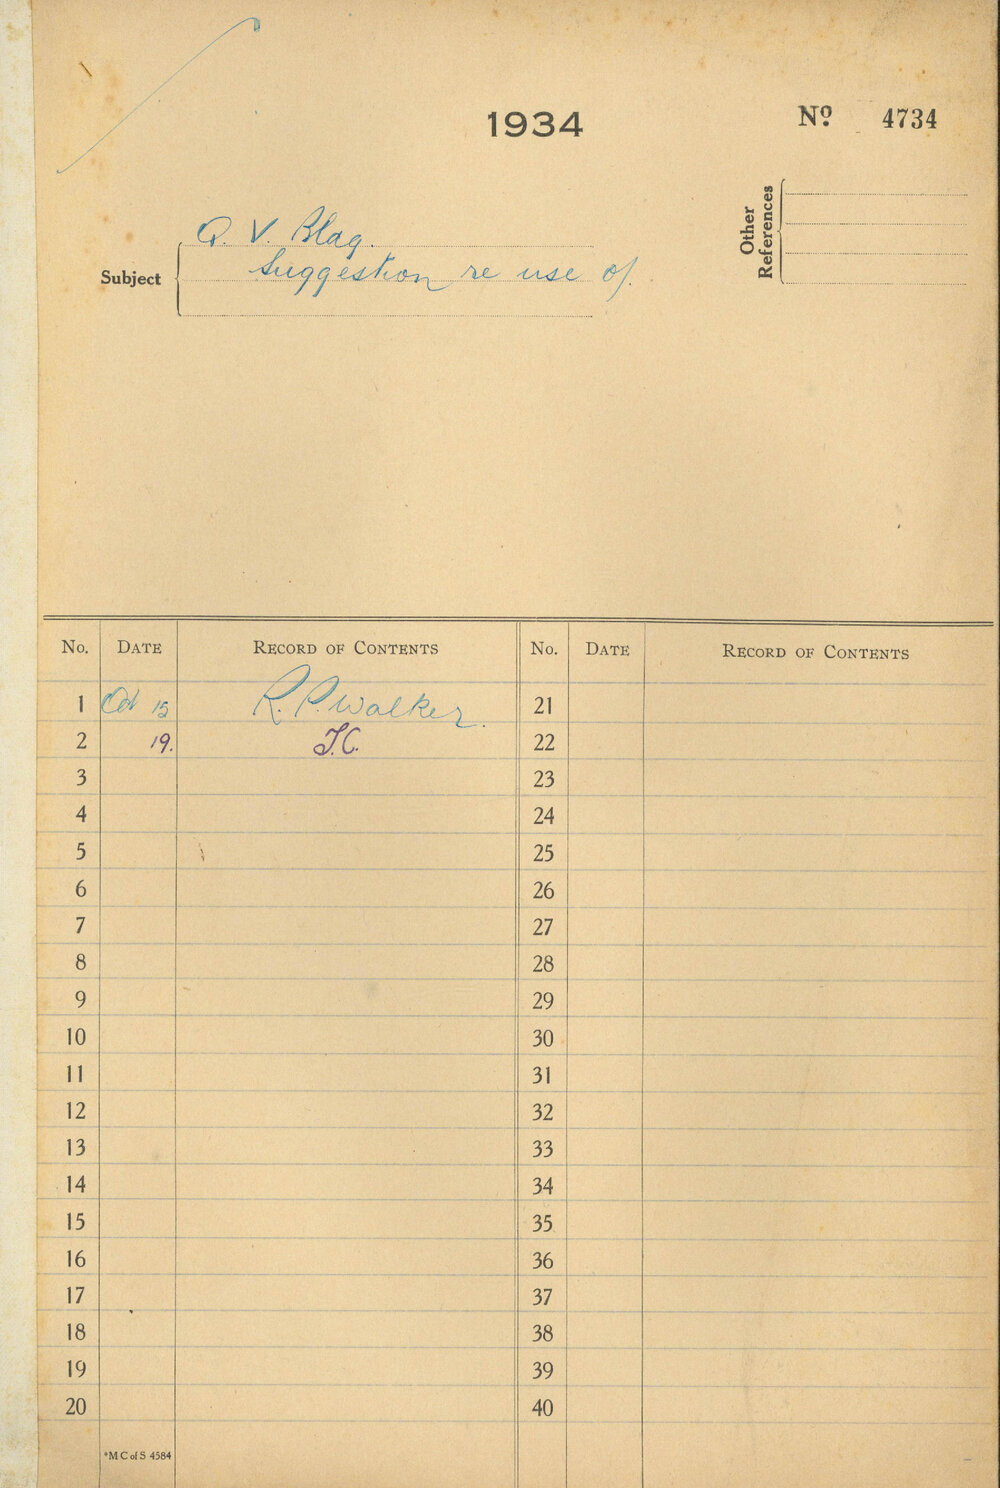 1934
No. 4734
Other References
Subject
Q. V. Blag.
Suggestion re use of.
No. DATE RECORD OF CONTENTS No. DATE RECORD OF CONTENTS
1 Oct 15 R. P. Walker. 21
2 19. T.C. 22
3 23
4 24
5 25
6 26
7 27
8 28
9 29
10 30
11 31
12 32
13 33
14 34
15 35
16 36
17 37
18 38
19 39
20 40
*M C of S 4584